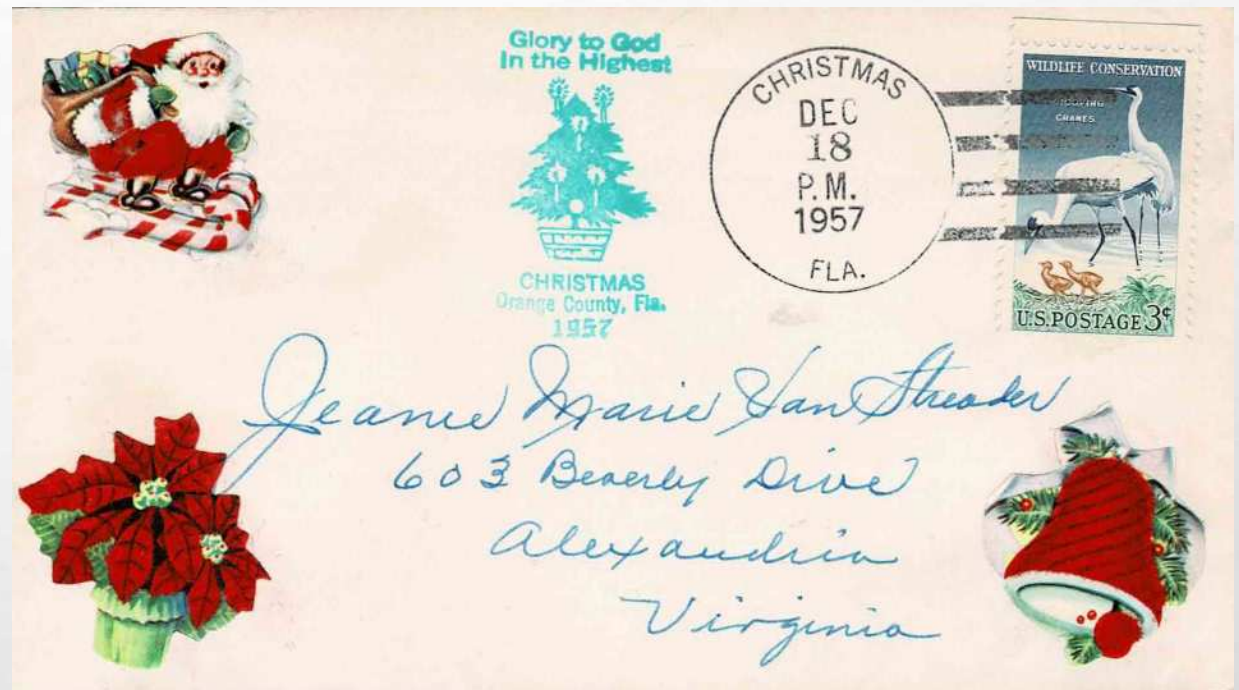 Glory to God
In the Highest
CHRISTMAS
Orange County, Fla.
1957
CHRISTMAS
DEC
18
P.M.
1957
FLA.
WILDLIFE CONSERVATION
WHOOPING
CRANES
U.S.POSTAGE 3¢
Jeanne Marie Van Streader
603 Beverly Drive
Alexandria
Virginia